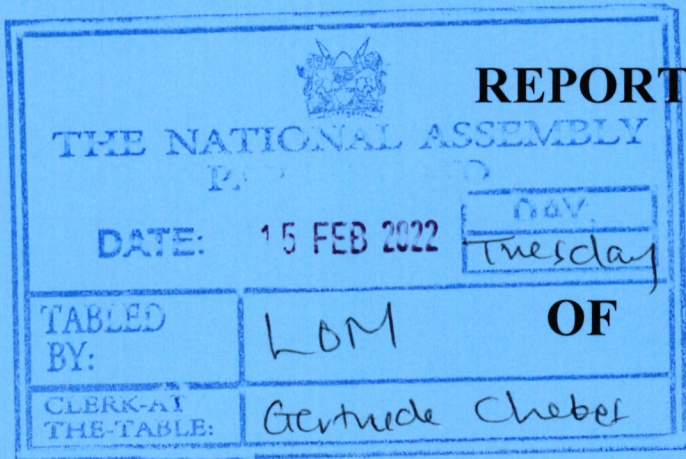 REPORT
THE NATIONAL ASSEMBLY
DATE: 15 FEB 2022
DAY:
Tuesday
OF
TABLED
BY: LOM
CLERK-AT
THE-TABLE: Gertrude Chebet